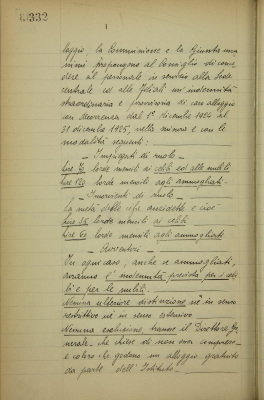 332
loggio, la Commissione e la Giunta una-
nimi propongono al Consiglio di conce-
dere al personale in servizio alla Sede
centrale ed alle Filiali un'indennità
straordinaria e provvisoria di caro alloggio
con decorrenza dal 1° dicembre 1924 al
31 dicembre 1925, nella misura e con le
modalità seguenti:
- Impiegati di ruolo -
lorde mensili ai celibi ed alle nubili
Lire 120 lorde mensili agli ammogliati.
- Inservienti di ruolo -
La metà delle cifre anzidette e cioè
Lire 35 lorde mensili ai celibi
Lire 60 lorde mensili agli ammogliati
- Avventizi -
In ogni caso, anche se ammogliati,
avranno l'indennità prevista per i celi-
bi e per le nubili.
Nessuna ulteriore distinzione nè in senso
restrittivo nè in senso estensivo.
Nessuna esclusione, tranne il Direttore Ge-
nerale - che chiese di non esser compreso -
e coloro che godono un alloggio gratuito
da parte dell'Istituto.